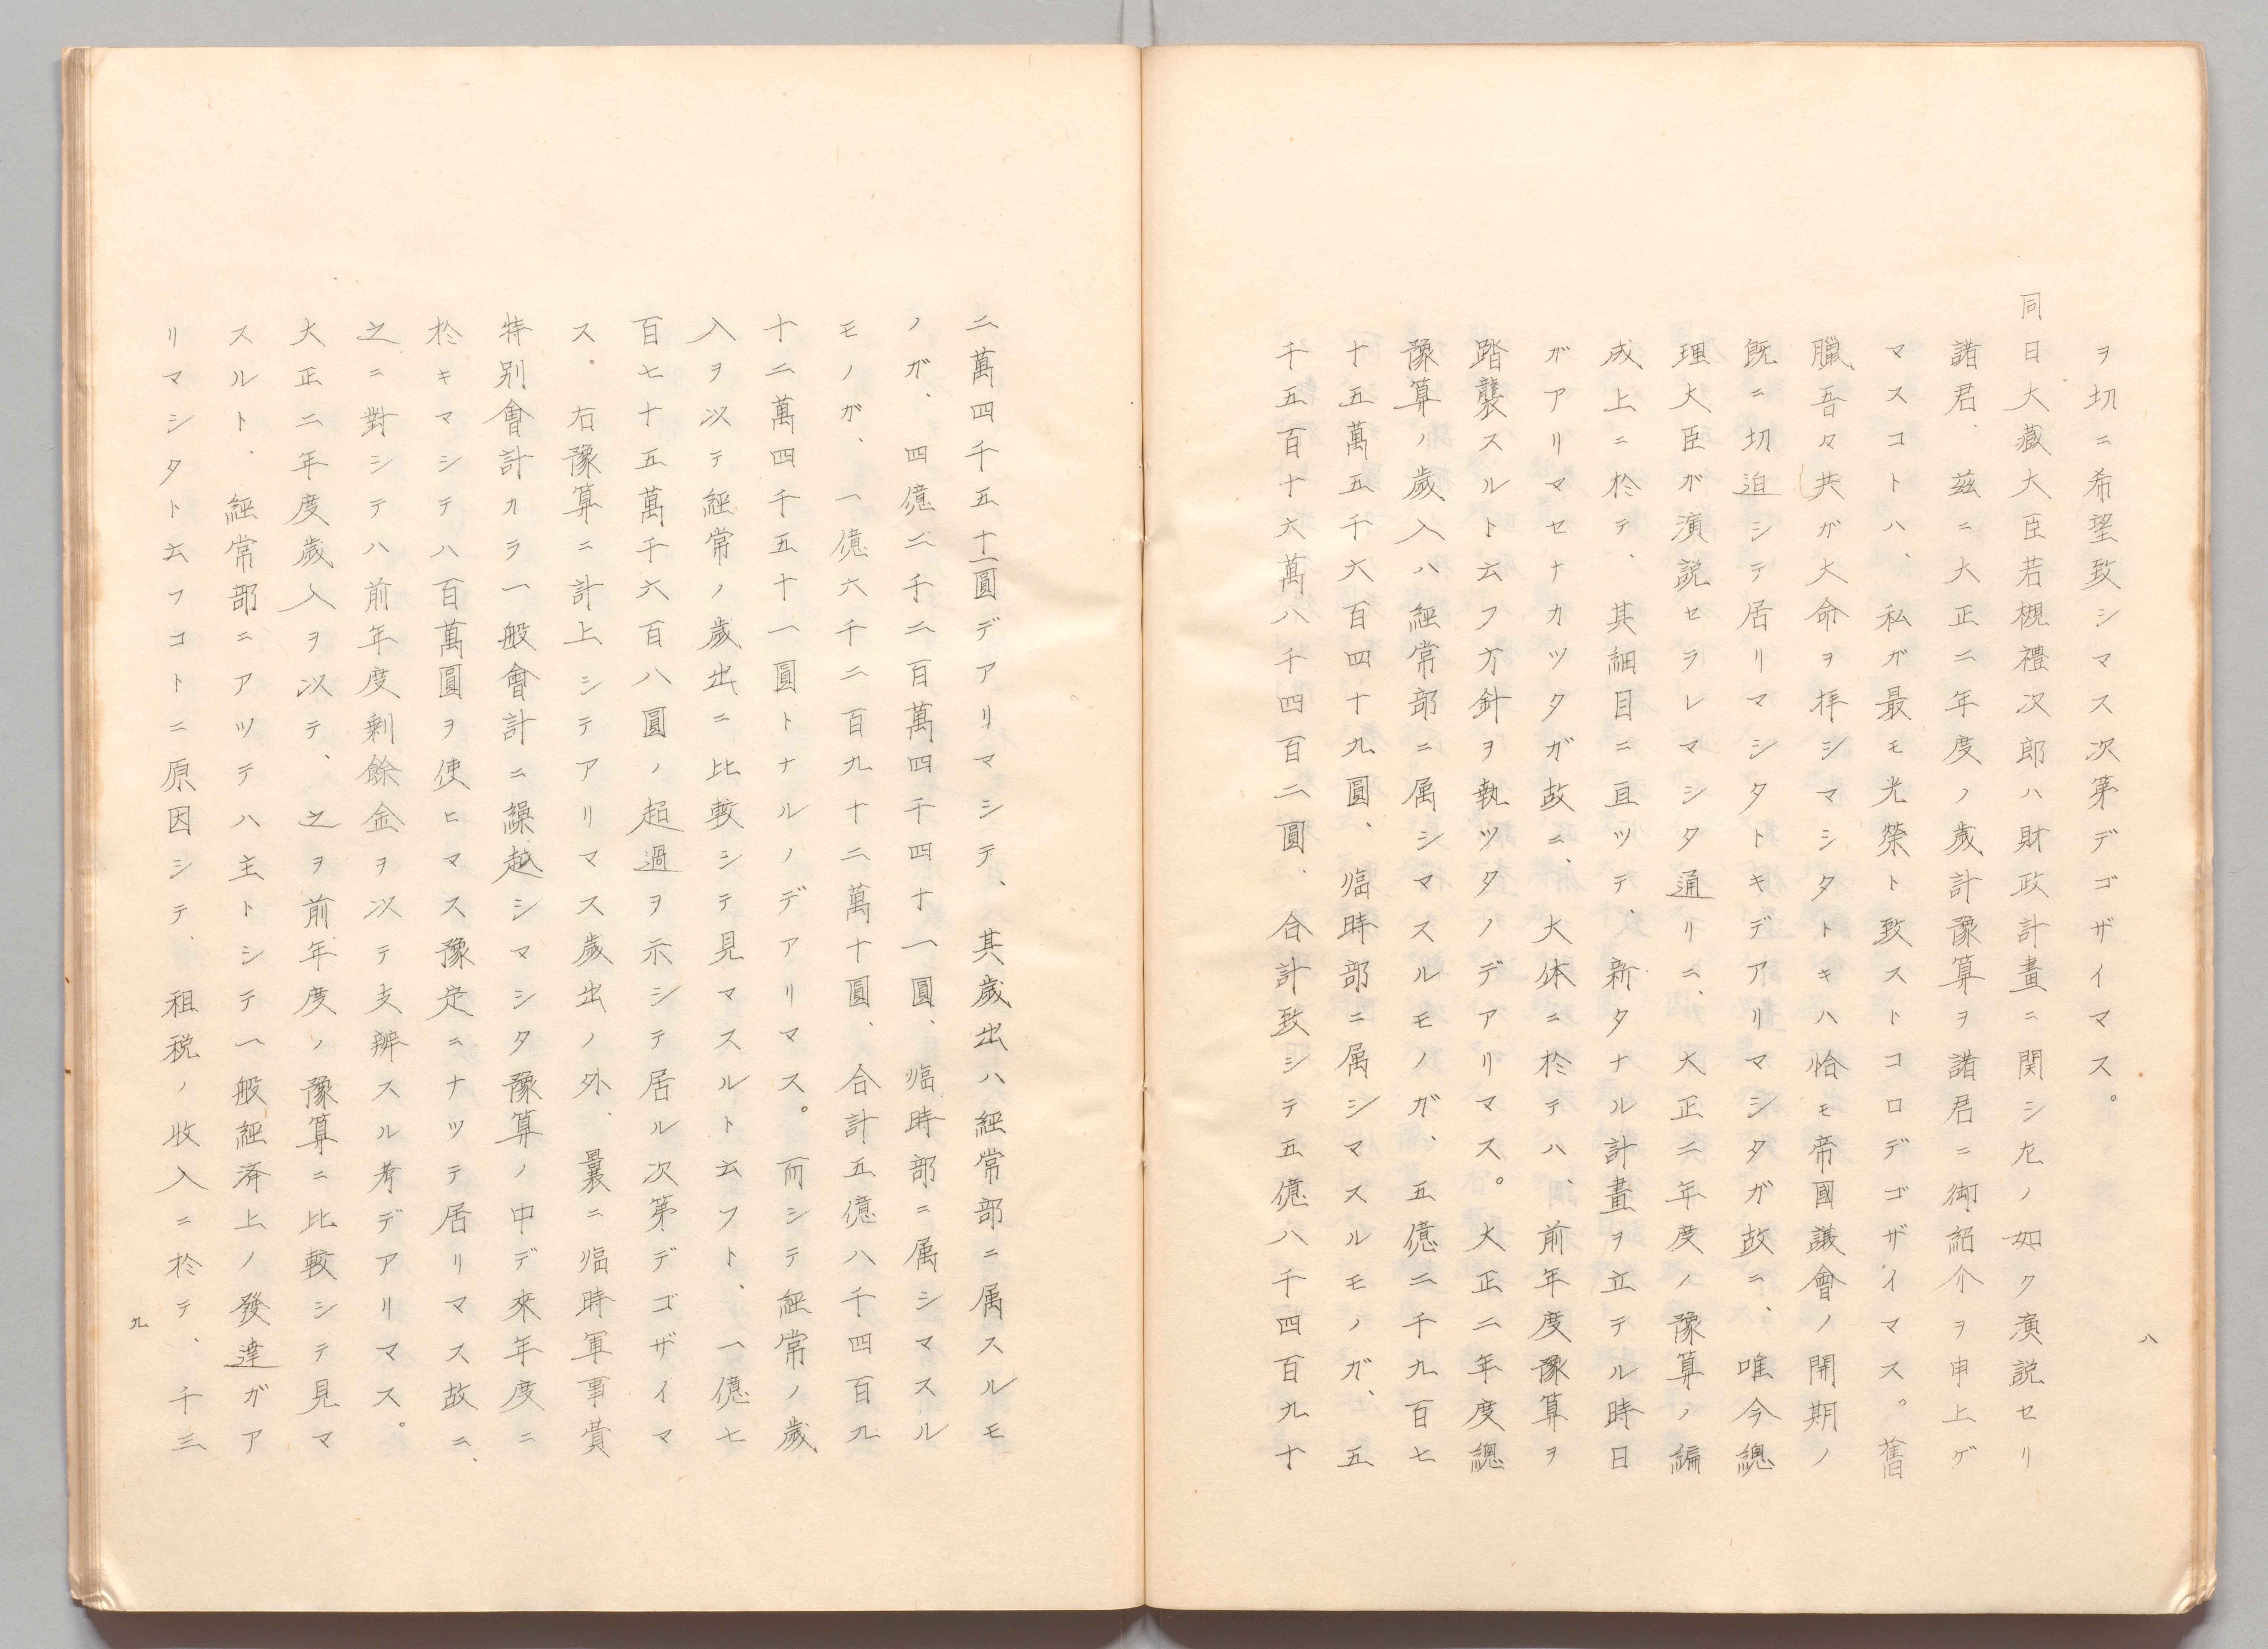 ヲ切ニ希望致シマス次第デゴザイマス。
同日大藏大臣若槻禮次郎ハ財政計畫ニ関シ左ノ如ク演説セリ
諸君、茲ニ大正二年度ノ歳計豫算ヲ諸君ニ御紹介ヲ申上ゲ
マスコトハ、私ガ最モ光榮ト致ストコロデゴザイマス。舊
臘吾々共ガ大命ヲ拝シマシタトキハ恰モ帝國議會ノ開期ノ
既ニ切迫シテ居リマシタトキデアリマシタガ故ニ、唯今總
理大臣ガ演説セラレマシタ通リニ、大正二年度ノ豫算ノ編
成上ニ於テ、其細目ニ亘ツテ、新タナル計畫ヲ立テル時日
ガアリマセナカツタガ故ニ、大体ニ於テハ、前年度豫算ヲ
踏襲スルト云フ方針ヲ執ツタノデアリマス。大正二年度總
豫算ノ歳入ハ經常部ニ属シマスルモノガ、五億二千九百七
十五萬五千六百四十九圓、臨時部ニ属シマスルモノガ、五
千五百十六萬八千四百二圓、合計致シテ五億八千四百九十
八
二萬四千五十一圓デアリマシテ、其歳出ハ經常部ニ属スルモ
ノガ、四億二千二百萬四千四十一圓、臨時部ニ属シマスル
モノガ、一億六千二百九十二萬十圓、合計五億八千四百九
十二萬四千五十一圓トナルノデアリマス。而シテ經常ノ歳
入ヲ以テ經常ノ歳出ニ比較シテ見マスルト云フト、一億七
百七十五萬千六百八圓ノ超過ヲ示シテ居ル次第デゴザイマ
ス。右豫算ニ計上シテアリマス歳出ノ外、曩ニ臨時軍事費
特別會計カラ一般會計ニ繰越シマシタ豫算ノ中デ來年度ニ
於キマシテハ百萬圓ヲ使ヒマス豫定ニナツテ居リマス故ニ、
之ニ對シテハ前年度剰餘金ヲ以テ支辨スル考デアリマス。
大正二年度歳入ヲ以テ、之ヲ前年度ノ豫算ニ比較シテ見マ
スルト、經常部ニアツテハ主トシテ一般經済上ノ發達ガア
リマシタト云フコトニ原因シテ、租税ノ收入ニ於テ、千三
九